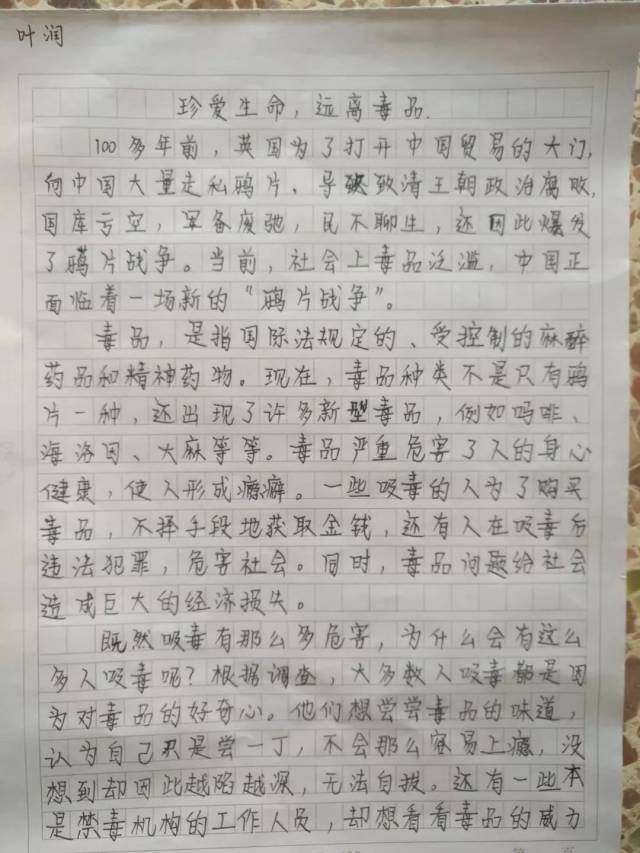 叶润
珍爱生命，远离毒品.
100多年前，英国为了打开中国贸易的大门，
向中国大量走私鸦片，导致清王朝政治腐败，
国库亏空，军备废弛，民不聊生，还因此爆发
了鸦片战争。当前，社会上毒品泛滥，中国正
面临着一场新的“鸦片战争”。
毒品，是指国际法规定的、受控制的麻醉
药品和精神药物。现在，毒品种类不是只有鸦
片一种，还出现了许多新型毒品，例如吗啡、
海洛因、大麻等等。毒品严重危害了人的身心
健康，使人形成瘾癖。一些吸毒的人为了购买
毒品，不择手段地获取金钱，还有人在吸毒后
违法犯罪，危害社会。同时，毒品问题给社会
造成巨大的经济损失。
既然吸毒有那么多危害，为什么会有这么
多人吸毒呢？根据调查，大多数人吸毒都是因
为对毒品的好奇心。他们想尝尝毒品的味道，
认为自己只是尝一丁，不会那么容易上瘾，没
想到却因此越陷越深，无法自拔。还有一些本
是禁毒机构的工作人员，却想看看毒品的威力